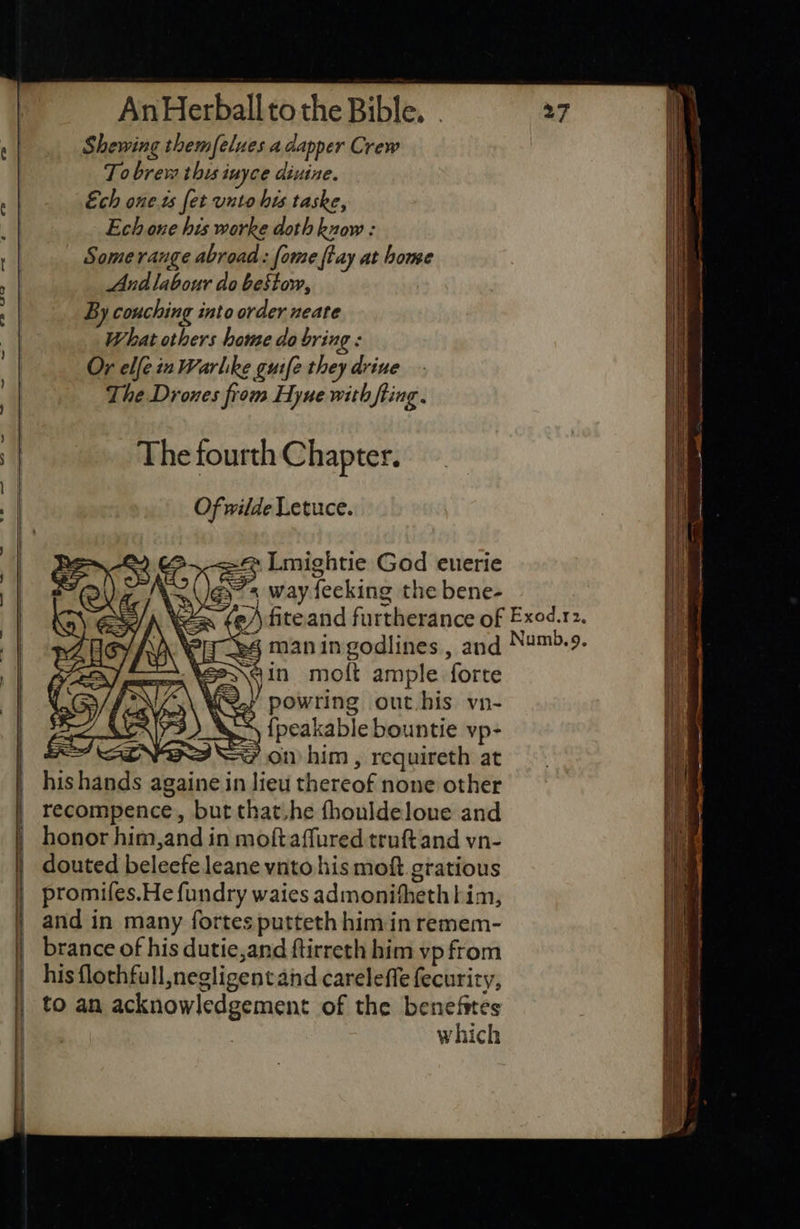 An Herball to the Bible. 27
Shewing themſelues a dapper Crew
To brew this iuyce diuine.
Ech one is ſet vnto his taske,
Ech one his worke doth know :
Some range abroad : ſome ſtay at home
And labour do beſtow,
By couching into order neate
What others home do bring :
Or elſe in Warlike guiſe they driue
The Drones from Hyue with ſting.
The fourth Chapter.
Of wilde Letuce.
ALmightie God euerie
way ſeeking the bene-
fite and furtherance of Exod.12.
man in godlines , and Numb.9.
in moſt ample ſorte
powring out his vn-
ſpeakable bountie vp-
on him , requireth at
his hands againe in lieu thereof none other
recompence , but that he ſhouldeloue and
honor him,and in moſt aſſured truſt and vn-
douted beleefe leane vnto his moſt gratious
promiſes.He ſundry waies admoniſheth him,
and in many ſortes putteth him in remem-
brance of his dutie,and ſtirreth him vp from
his ſlothfull,negligent and careleſſe ſecurity,
to an acknowledgement of the benefites
which